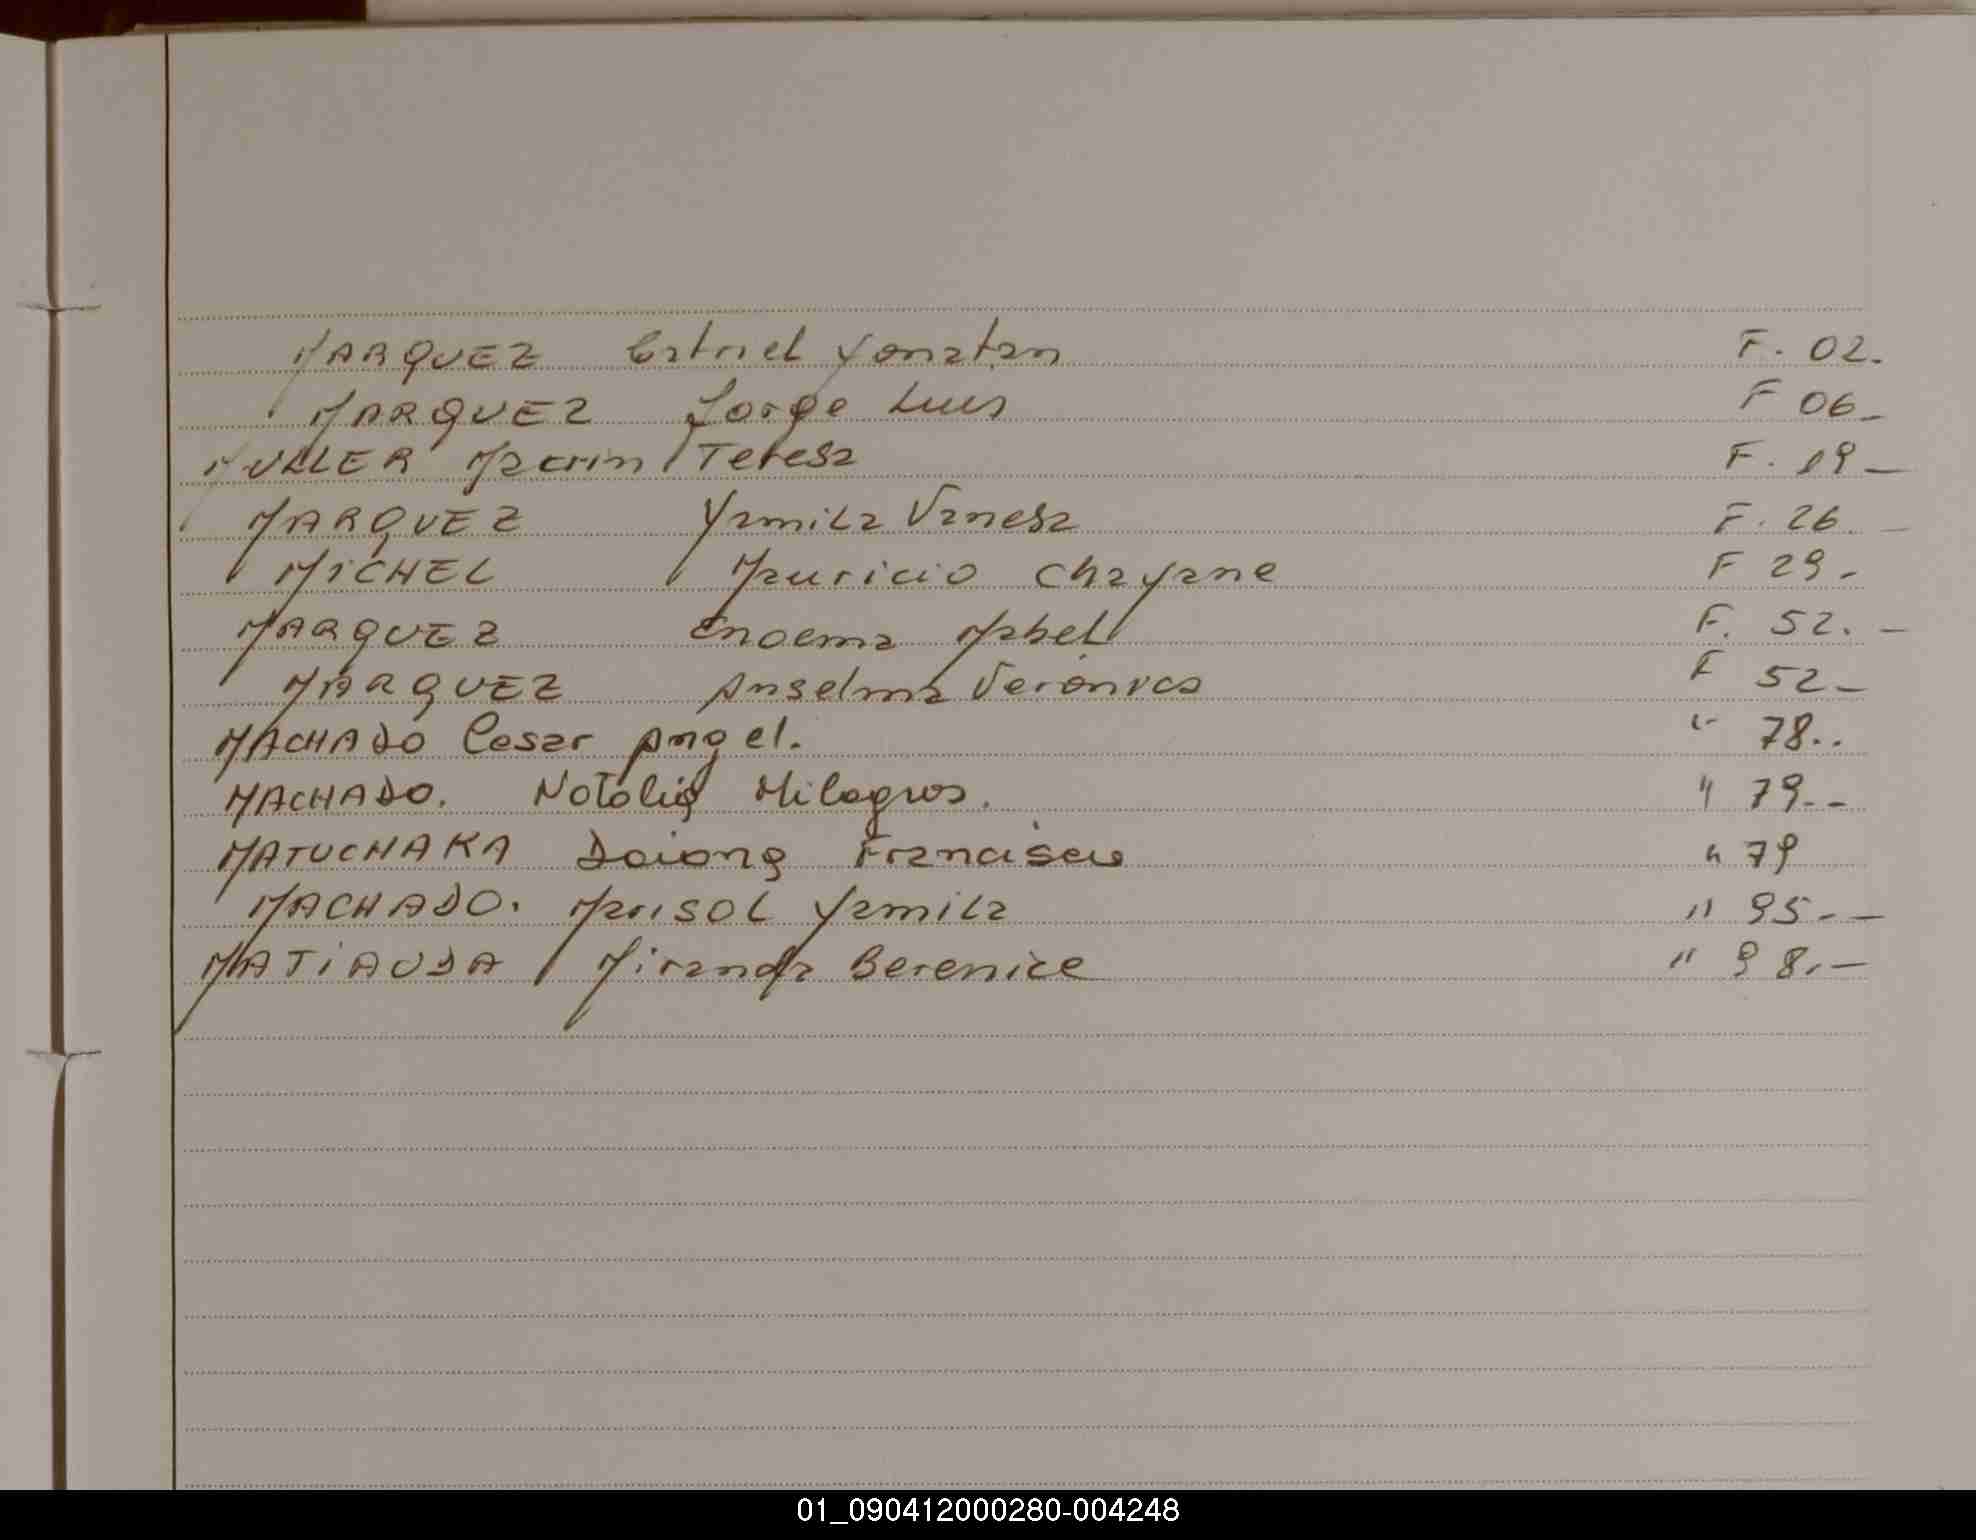 MARQUEZ Catriel Yonatan F. 02.
MARQUEZ Jorge Luis F 06_
MULLER Marin Teresa F. 19_
MARQUEZ Yamila Vanesa F. 26. _
MICHEL Mauricio Chayane F 29.
MARQUEZ Enoema Mabel F. 52. _
MARQUEZ Anselma Verónica F 52_
MACHADO Cesar Angel. " 78..
MACHADO. Natalia Milagros. " 79--
MATUCHAKA Daiana Francisca " 79
MACHADO. Marisol Yamila " 95.-_
MATIAUDA Miranda Berenice " 98._
01_090412000280-004248